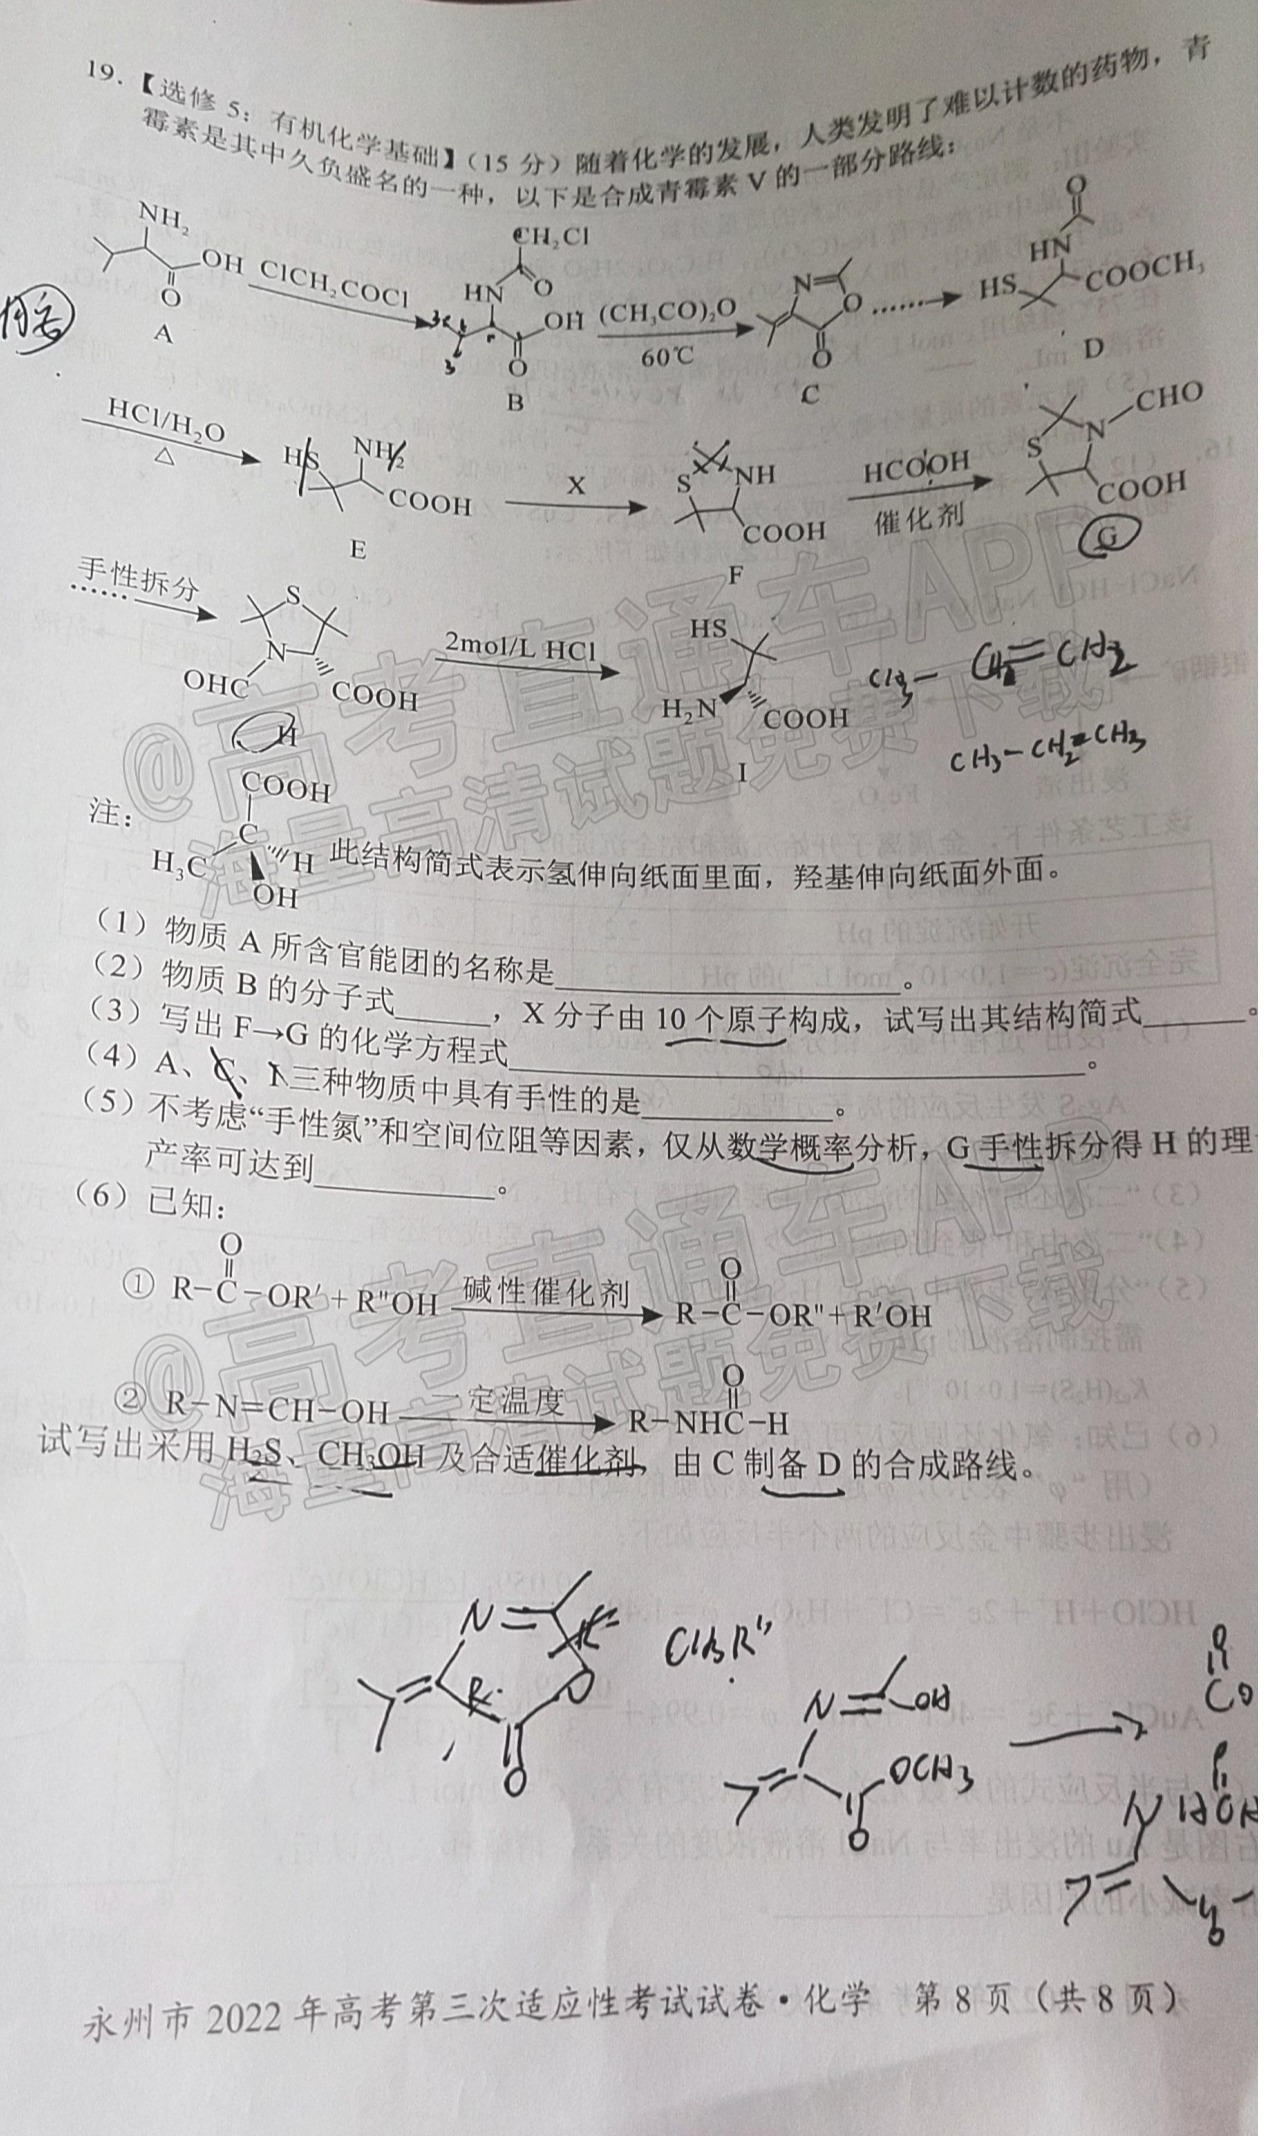 19.【选修 5：有机化学基础】（15 分）随着化学的发展，人类发明了难以计数的药物，青
霉素是其中久负盛名的一种，以下是合成青霉素 V 的一部分路线：
NH₂
OH
O
A
ClCH₂COCl
CH₂Cl
HN
O
OH
O
B
(CH₃CO)₂O
60℃
N
O
O
C
……
O
HN
HS
COOCH₃
D
HCl/H₂O
△
HS
NH₂
COOH
E
X
S
NH
COOH
F
HCOOH
催化剂
S
N
CHO
COOH
G
手性拆分
……
S
N
OHC
COOH
H
2mol/L HCl
HS
H₂N
COOH
I
CH₃-CH₂=CH₃
注：
COOH
C
H₃C
H
OH
此结构简式表示氢伸向纸面里面，羟基伸向纸面外面。
（1）物质 A 所含官能团的名称是____________。
（2）物质 B 的分子式______，X 分子由 10 个原子构成，试写出其结构简式______。
（3）写出 F→G 的化学方程式____________。
（4）A、C、I 三种物质中具有手性的是____________。
（5）不考虑“手性氮”和空间位阻等因素，仅从数学概率分析，G 手性拆分得 H 的理
产率可达到____________。
（6）已知：
① R-C(=O)-OR′+R″OH 碱性催化剂→ R-C(=O)-OR″+R′OH
② R-N=CH-OH 一定温度→ R-NHC(=O)-H
试写出采用 H₂S、CH₃OH 及合适催化剂，由 C 制备 D 的合成路线。
N
O
O
CH₃R″
N
OH
OCH₃
O
永州市 2022 年高考第三次适应性考试试卷·化学 第 8 页（共 8 页）
@高考直通车APP
海量高清试题免费下载
@高考直通车APP
海量高清试题免费下载